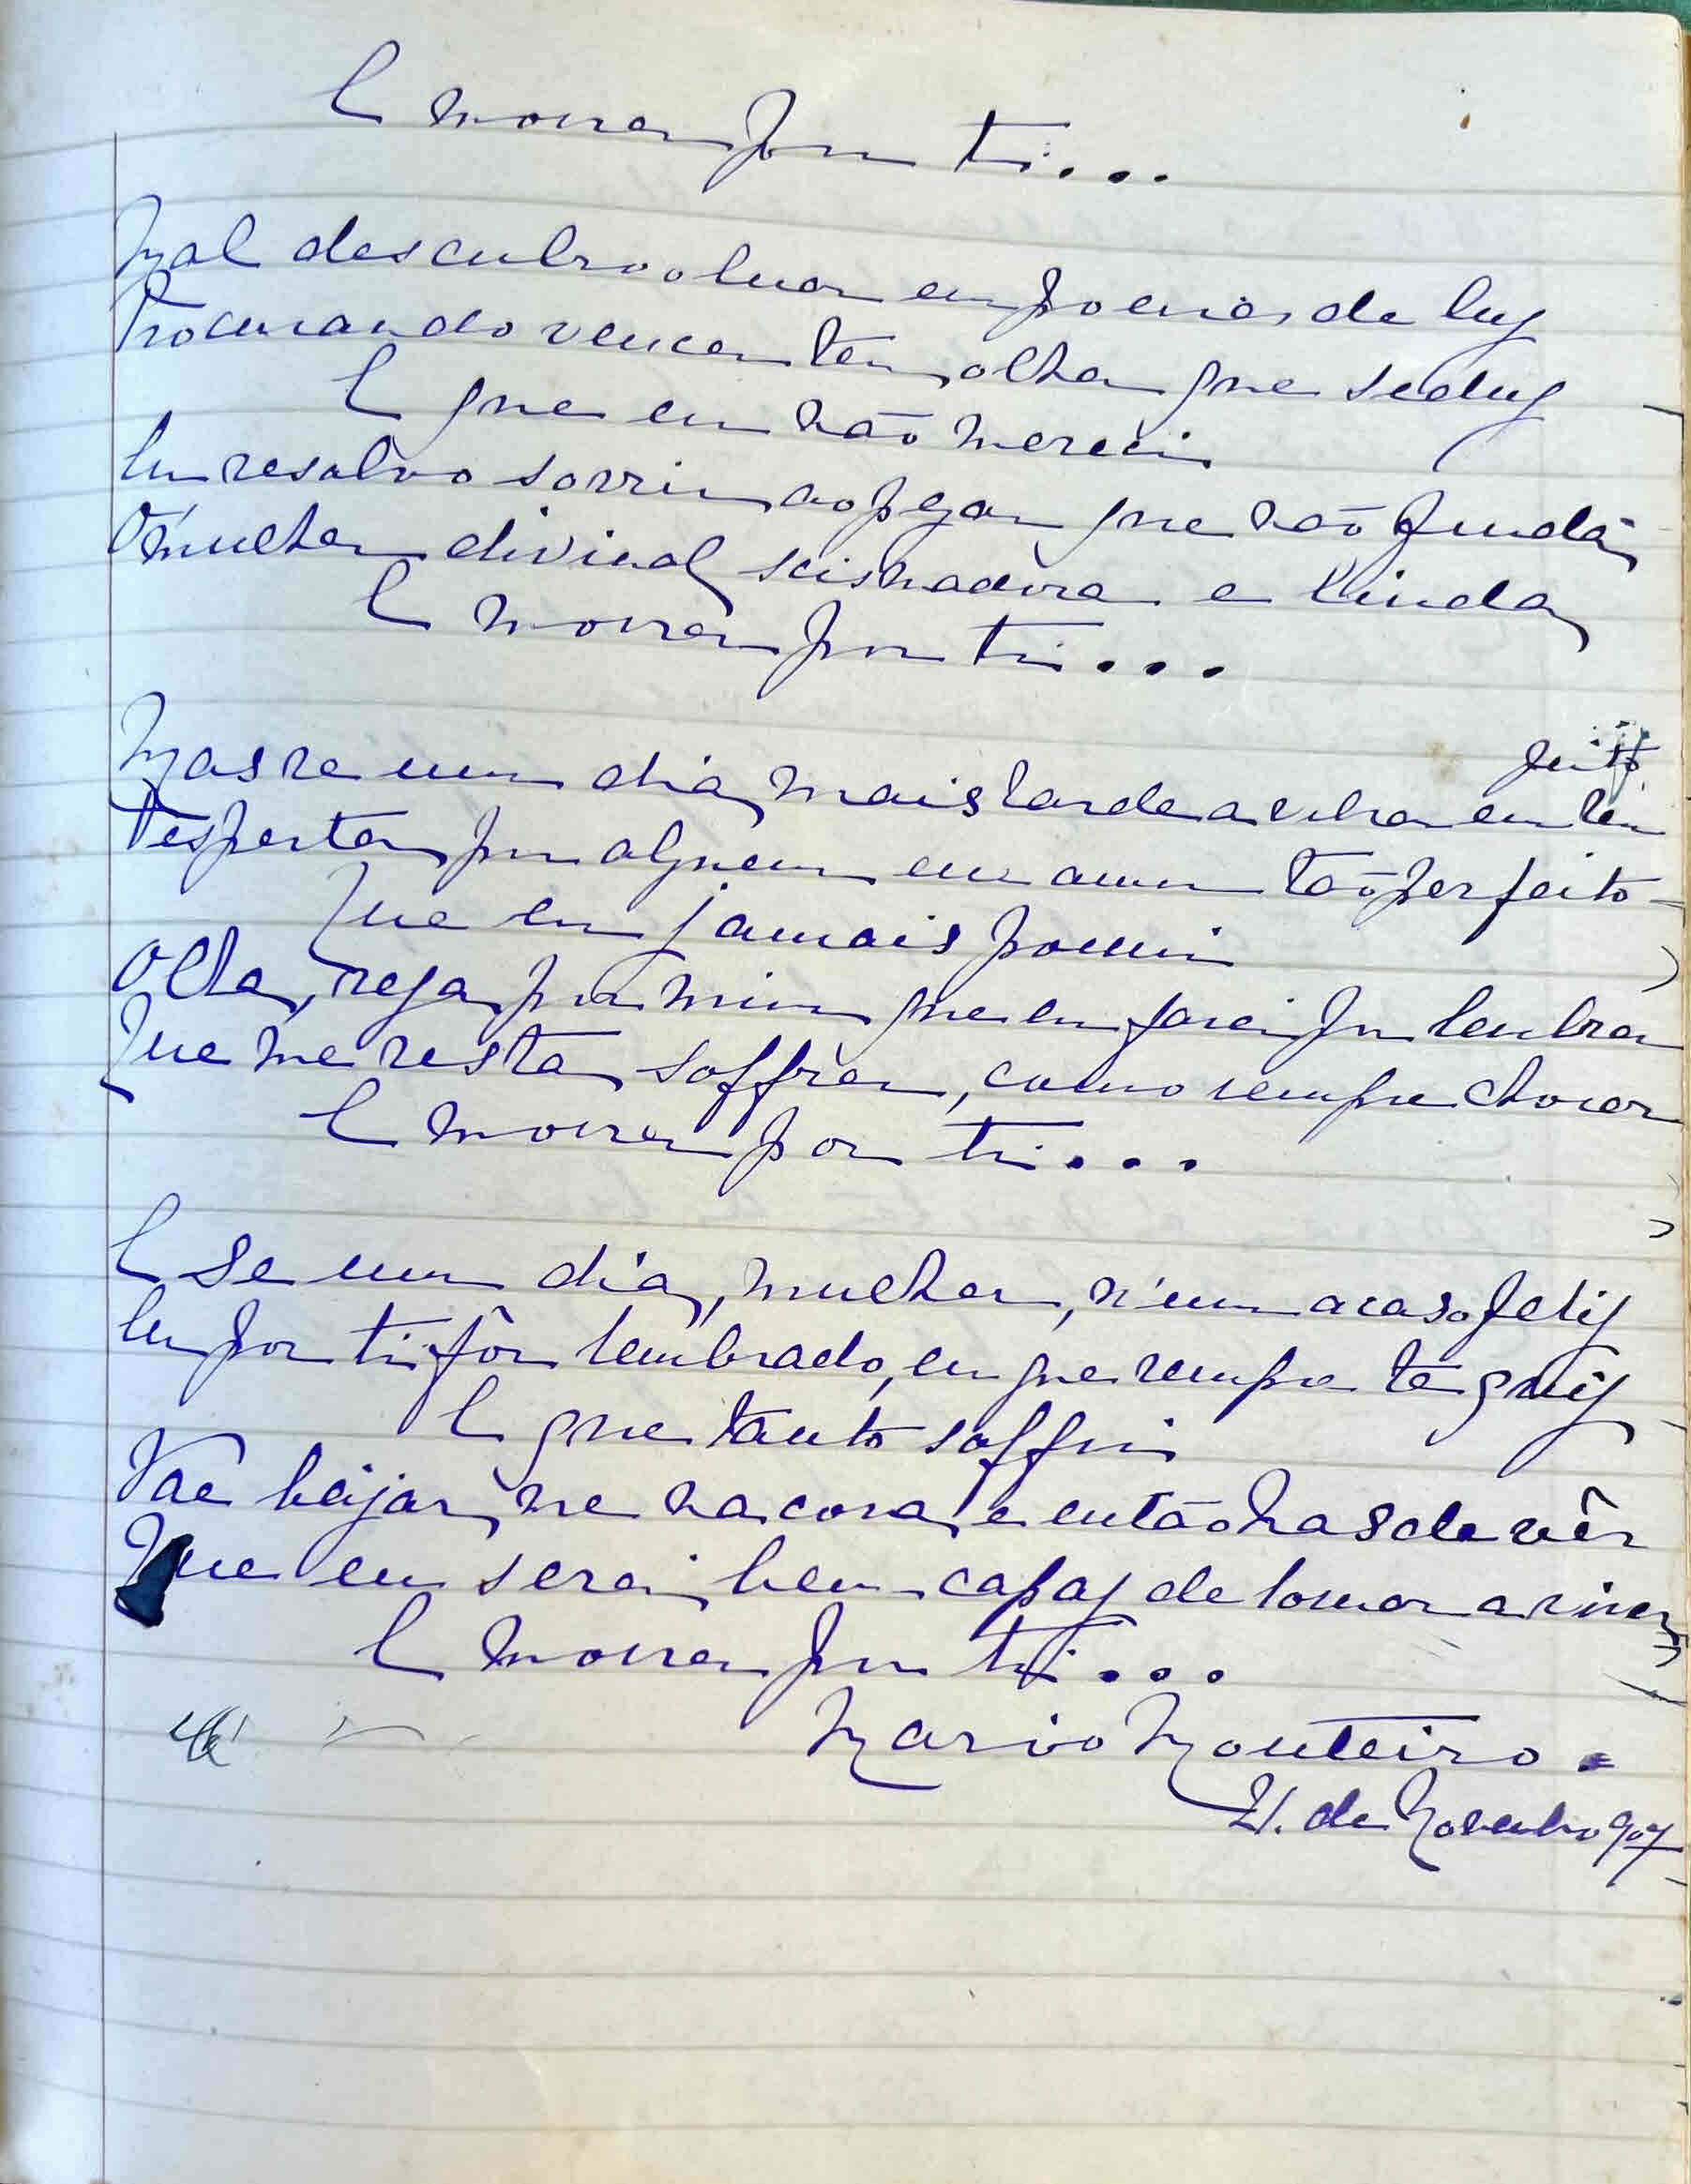 E morrer por ti...
Mal descubro o luar em poemas de luz
Procurando vencer teu olhar que seduz
E que eu não mereci
Eu resolvo sorrir ao pezar que não finda,
Ó mulher divinal scismadora e linda,
E morrer por ti...
Mas se um dia, mais tarde a vibrar em teu peito
Despertar por alguem um amor tão perfeito
Que eu jamais possui
Olha, reza por mim que eu farei por lembrar
Que me resta, soffrer, como sempre chorar
E morrer por ti...
E se um dia, mulher, n'um acaso feliz
Eu por ti fôr lembrado, eu que sempre te quiz
E que tanto soffri
Vae beijar-me na cova, e então has de vêr
Que eu serei bem capaz de tornar a viver,
E morrer por ti...
Mario Monteiro.
21. de Novembro 907